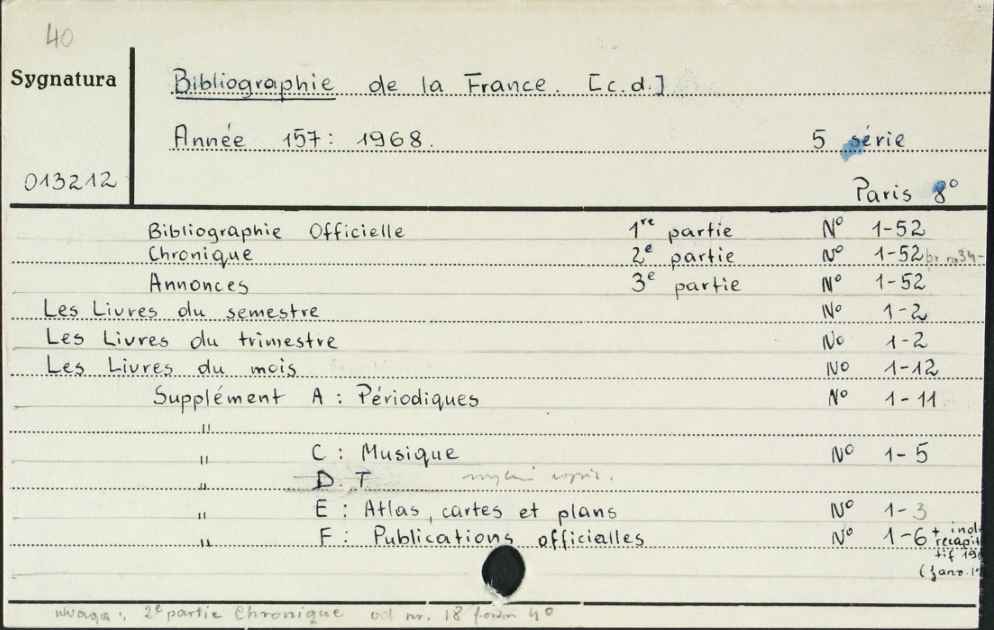 40
Sygnatura
Bibliographie de la France. [c.d.]
Année 157: 1968. 5 série
013212
Paris 8°
Bibliographie Officielle 1re partie N° 1-52
Chronique 2e partie N° 1-52
Annonces 3e partie N° 1-52
Les Livres du semestre N° 1-2
Les Livres du trimestre N° 1-2
Les Livres du mois N° 1-12
Supplément A : Périodiques N° 1-11
"
" C : Musique N° 1-5
" D. T
" E : Atlas, cartes et plans N° 1-3
" F : Publications officialles N° 1-6 +
uwaga : 2e partie Chronique od nr. 18 form 4°